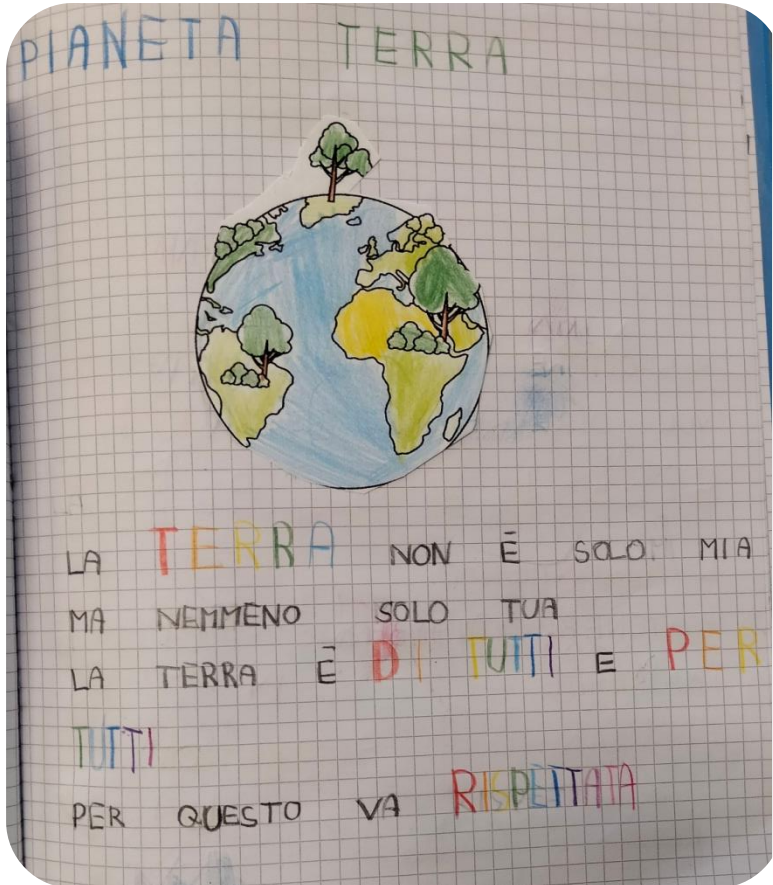 PIANETA TERRA
LA TERRA NON È SOLO MIA
MA NEMMENO SOLO TUA
LA TERRA È DI TUTTI E PER
TUTTI
PER QUESTO VA RISPETTATA